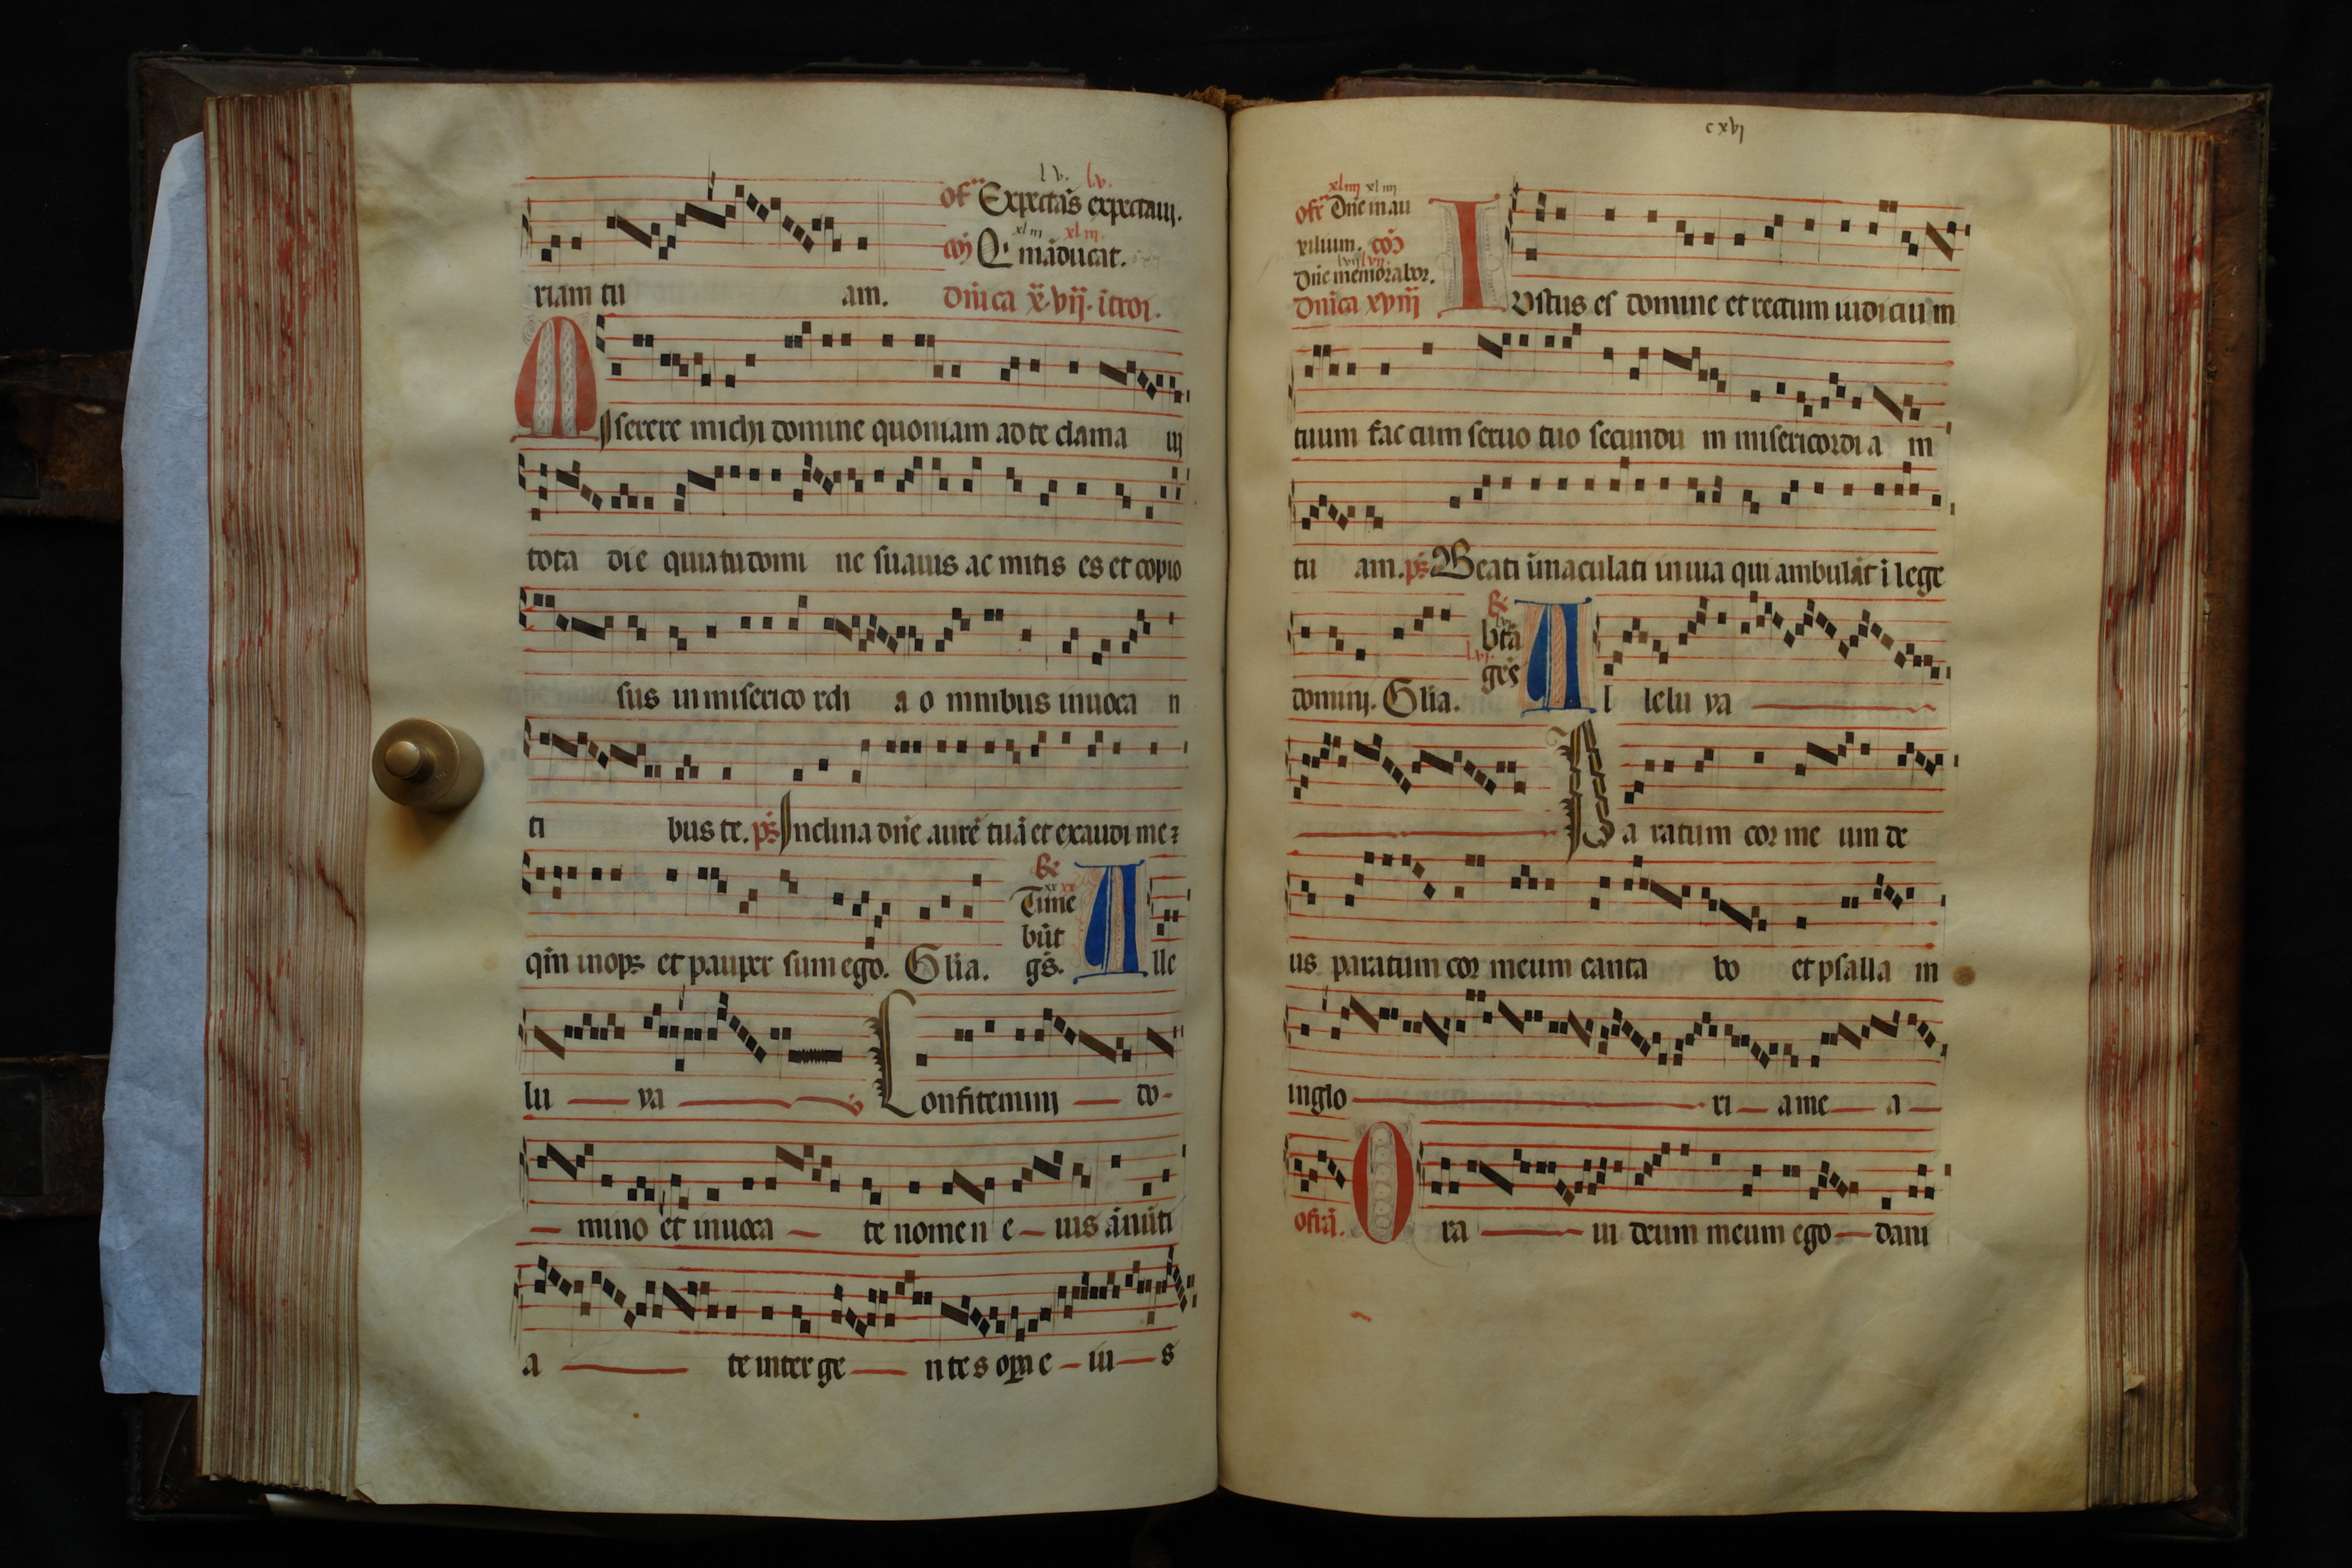 lv. lv.
of Expectās expectauj.
xlııı xlııı.
cōj Q' māducat.
riam tu am. dn̄ica x̄vij. ītroi.
Miserere michi domine quoniam ad te clama uj
tota die quia tu domi ne suauis ac mitis es et copio
sus in miserico rdi a o mnibus inuoca n
ti bus te. ps Inclina dn̄e aurē tuā et exaudi me
R̄
xx xx
Time
būt
qm̄ inops et pauper sum ego. Glia. gs̄. Alle
lu ya Confitemini do
mino et inuoca te nomen e ius ānūti
a te inter ge ntes opa e iu s
cxvj
xlıııı xlıııı
ofr̄ Dn̄e in au
xilium. cōo
lvij lvij
Dn̄e memorabor.
dn̄ica xviij Iustus es domine et rectum iudiciu m
tuum fac cum seruo tuo secundu m misericordi a m
tu am. ps Beati īmaculati in uia qui ambulāt ī lege
R̄
lvj
btā
lvj
gēs
dominj. Glia. Al lelu ya
Pa ratum cor me um de
us paratum cor meum canta bo et psalla m
in glo ri a me a
ofrā. Ora ui deum meum ego dani